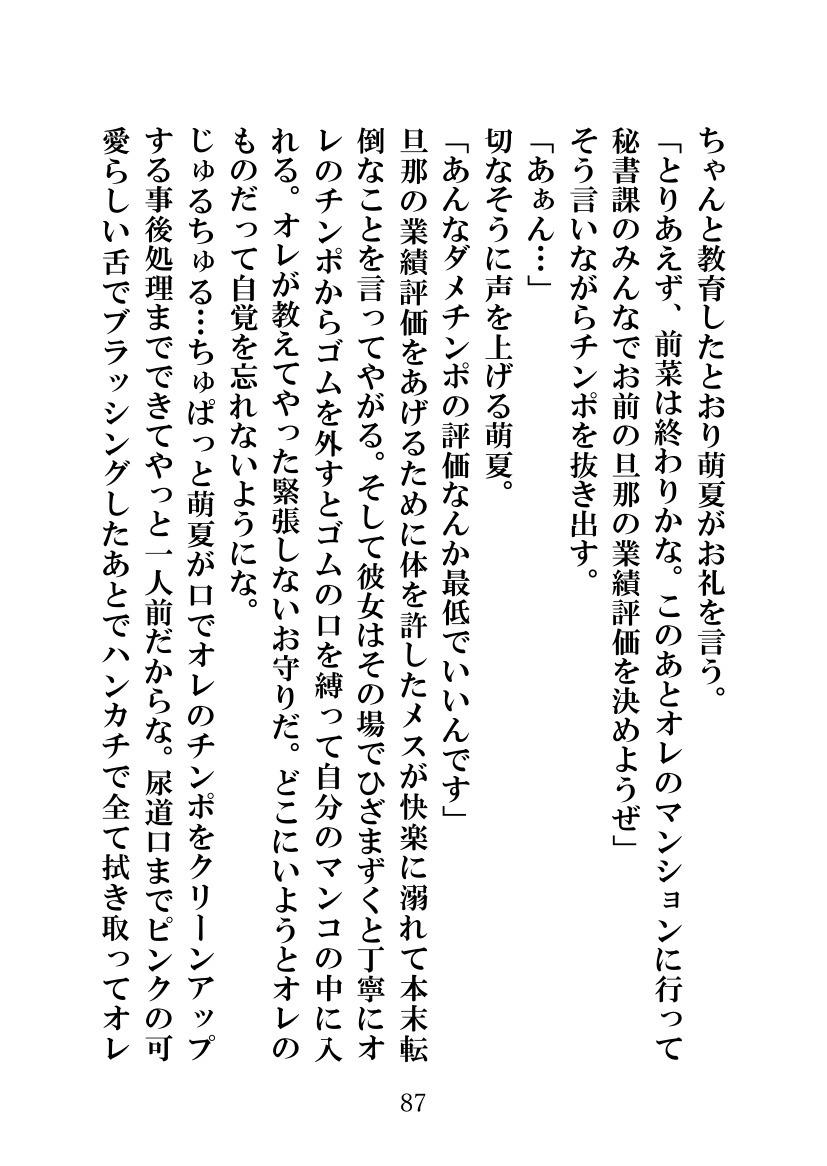 ちゃんと教育したとおり萌夏がお礼を言う。
「とりあえず、前菜は終わりかな。このあとオレのマンションに行って
秘書課のみんなでお前の旦那の業績評価を決めようぜ」
そう言いながらチンポを抜き出す。
「あぁん…」
切なそうに声を上げる萌夏。
「あんなダメチンポの評価なんか最低でいいんです」
旦那の業績評価をあげるために体を許したメスが快楽に溺れて本末転
倒なことを言ってやがる。そして彼女はその場でひざまずくと丁寧にオ
レのチンポからゴムを外すとゴムの口を縛って自分のマンコの中に入
れる。オレが教えてやった緊張しないお守りだ。どこにいようとオレの
ものだって自覚を忘れないようにな。
じゅるちゅる…ちゅぱっと萌夏が口でオレのチンポをクリーンアップ
する事後処理までできてやっと一人前だからな。尿道口までピンクの可
愛らしい舌でブラッシングしたあとでハンカチで全て拭き取ってオレ
87